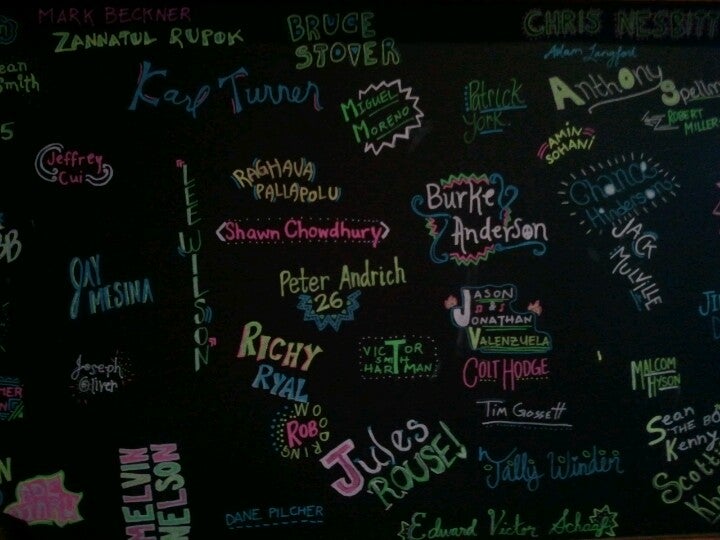 MARK BECKNER
ZANNATUL RUPOK
BRUCE
STOVER
CHRIS NESBITT
Adam Langford
ean
Smith
Karl Turner
MIGUEL
MORENO
Patrick
York
Anthony Spellm
ROBERT
MILLER
5
AMIN
SOHANI
Jeffrey
Cui
LEE WILSON
RAGHAVA
PALLAPOLU
Burke
Anderson
Chance
Hinderson
Shawn Chowdhury
JACK
MULVILLE
JAY
MESINA
Peter Andrich
26
JASON
&
JONATHAN
VALENZUELA
RICHY
RYAL
VICTOR
SMITH
HARTMAN
COLT HODGE
Joseph
Oliver
MALCOM
HYSON
TIM GOSSETT
WOODRING
ROB
Jules
ROUSE!
Sean
THE BO
Kenny
MELVIN
NELSON
Tally Winder
Scott
Kh
DANE PILCHER
Edward Victor Schaaf